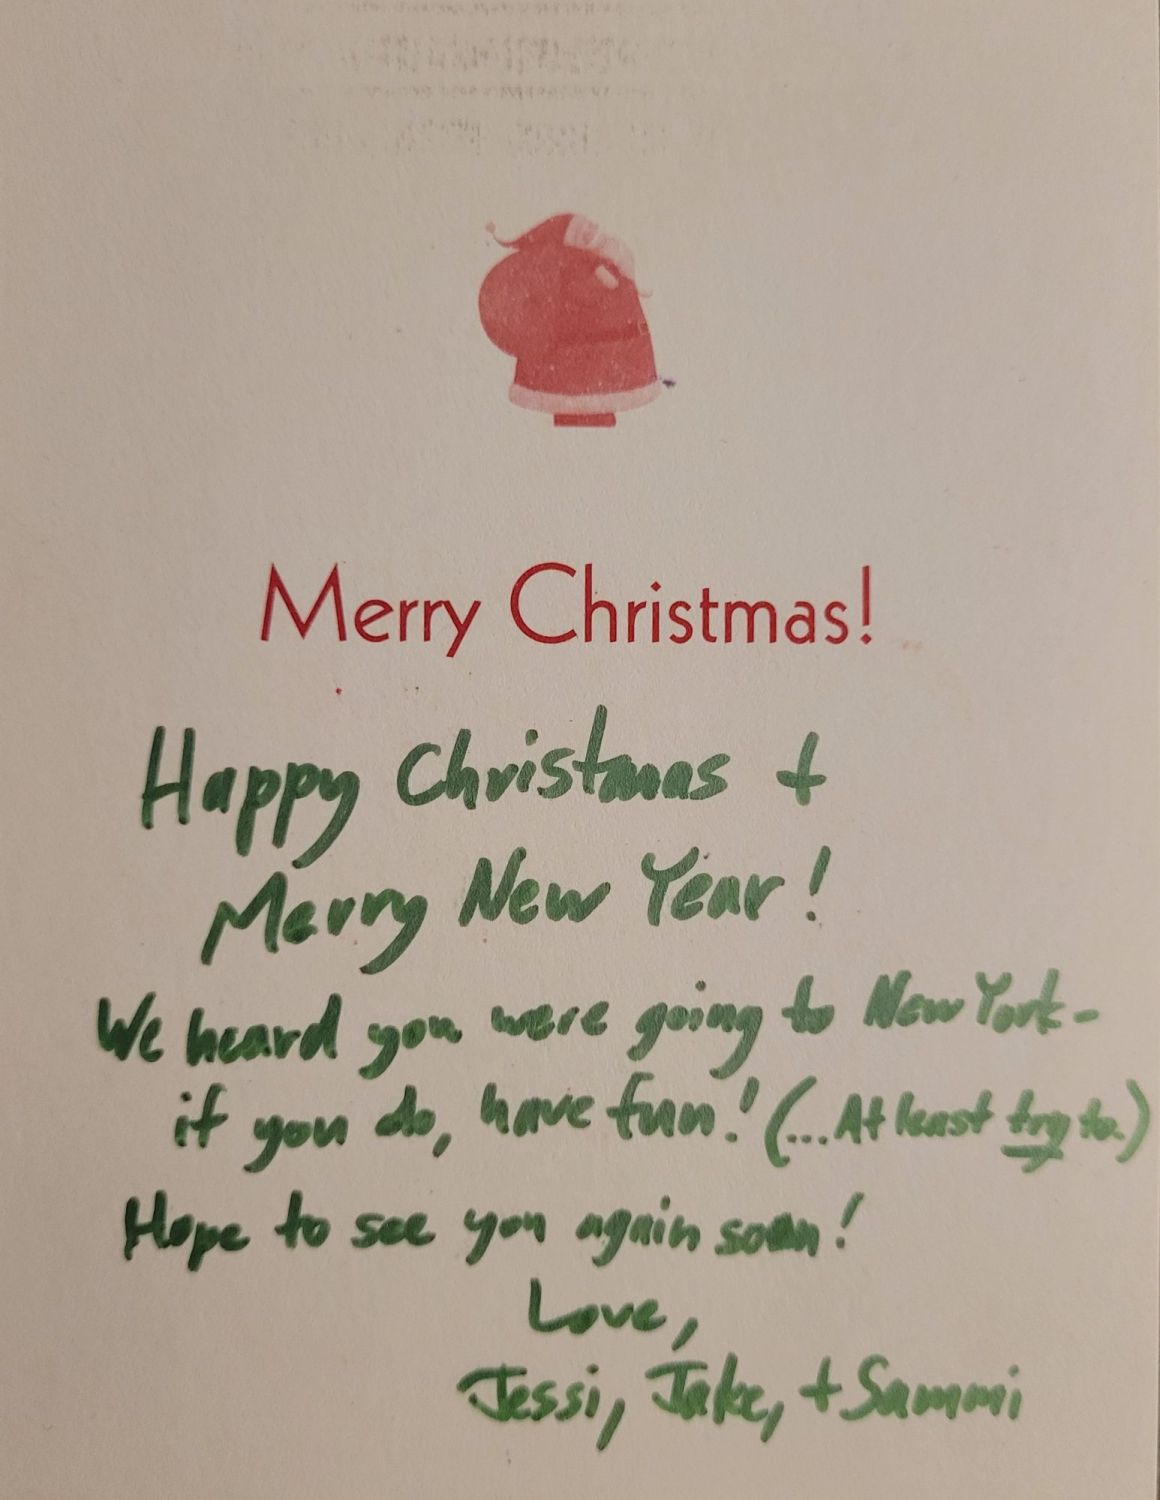 Merry Christmas!
Happy Christmas +
Merry New Year!
We heard you were going to New York-
if you do, have fun! (... At least try to.)
Hope to see you again soon!
Love,
Jessi, Jake, + Sammi